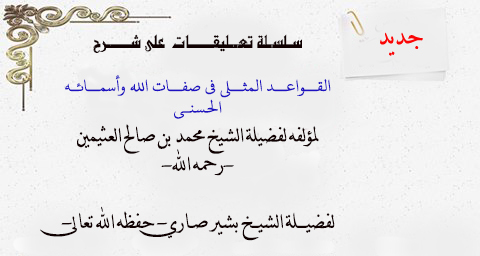 جديد
سلسلة تعليقات على شرح
القواعد المثلى في صفات الله وأسمائه
الحسنى
لمؤلفه لفضيلة الشيخ محمد بن صالح العثيمين
-رحمه الله-
لفضيلة الشيخ بشير صاري-حفظه الله تعالى-